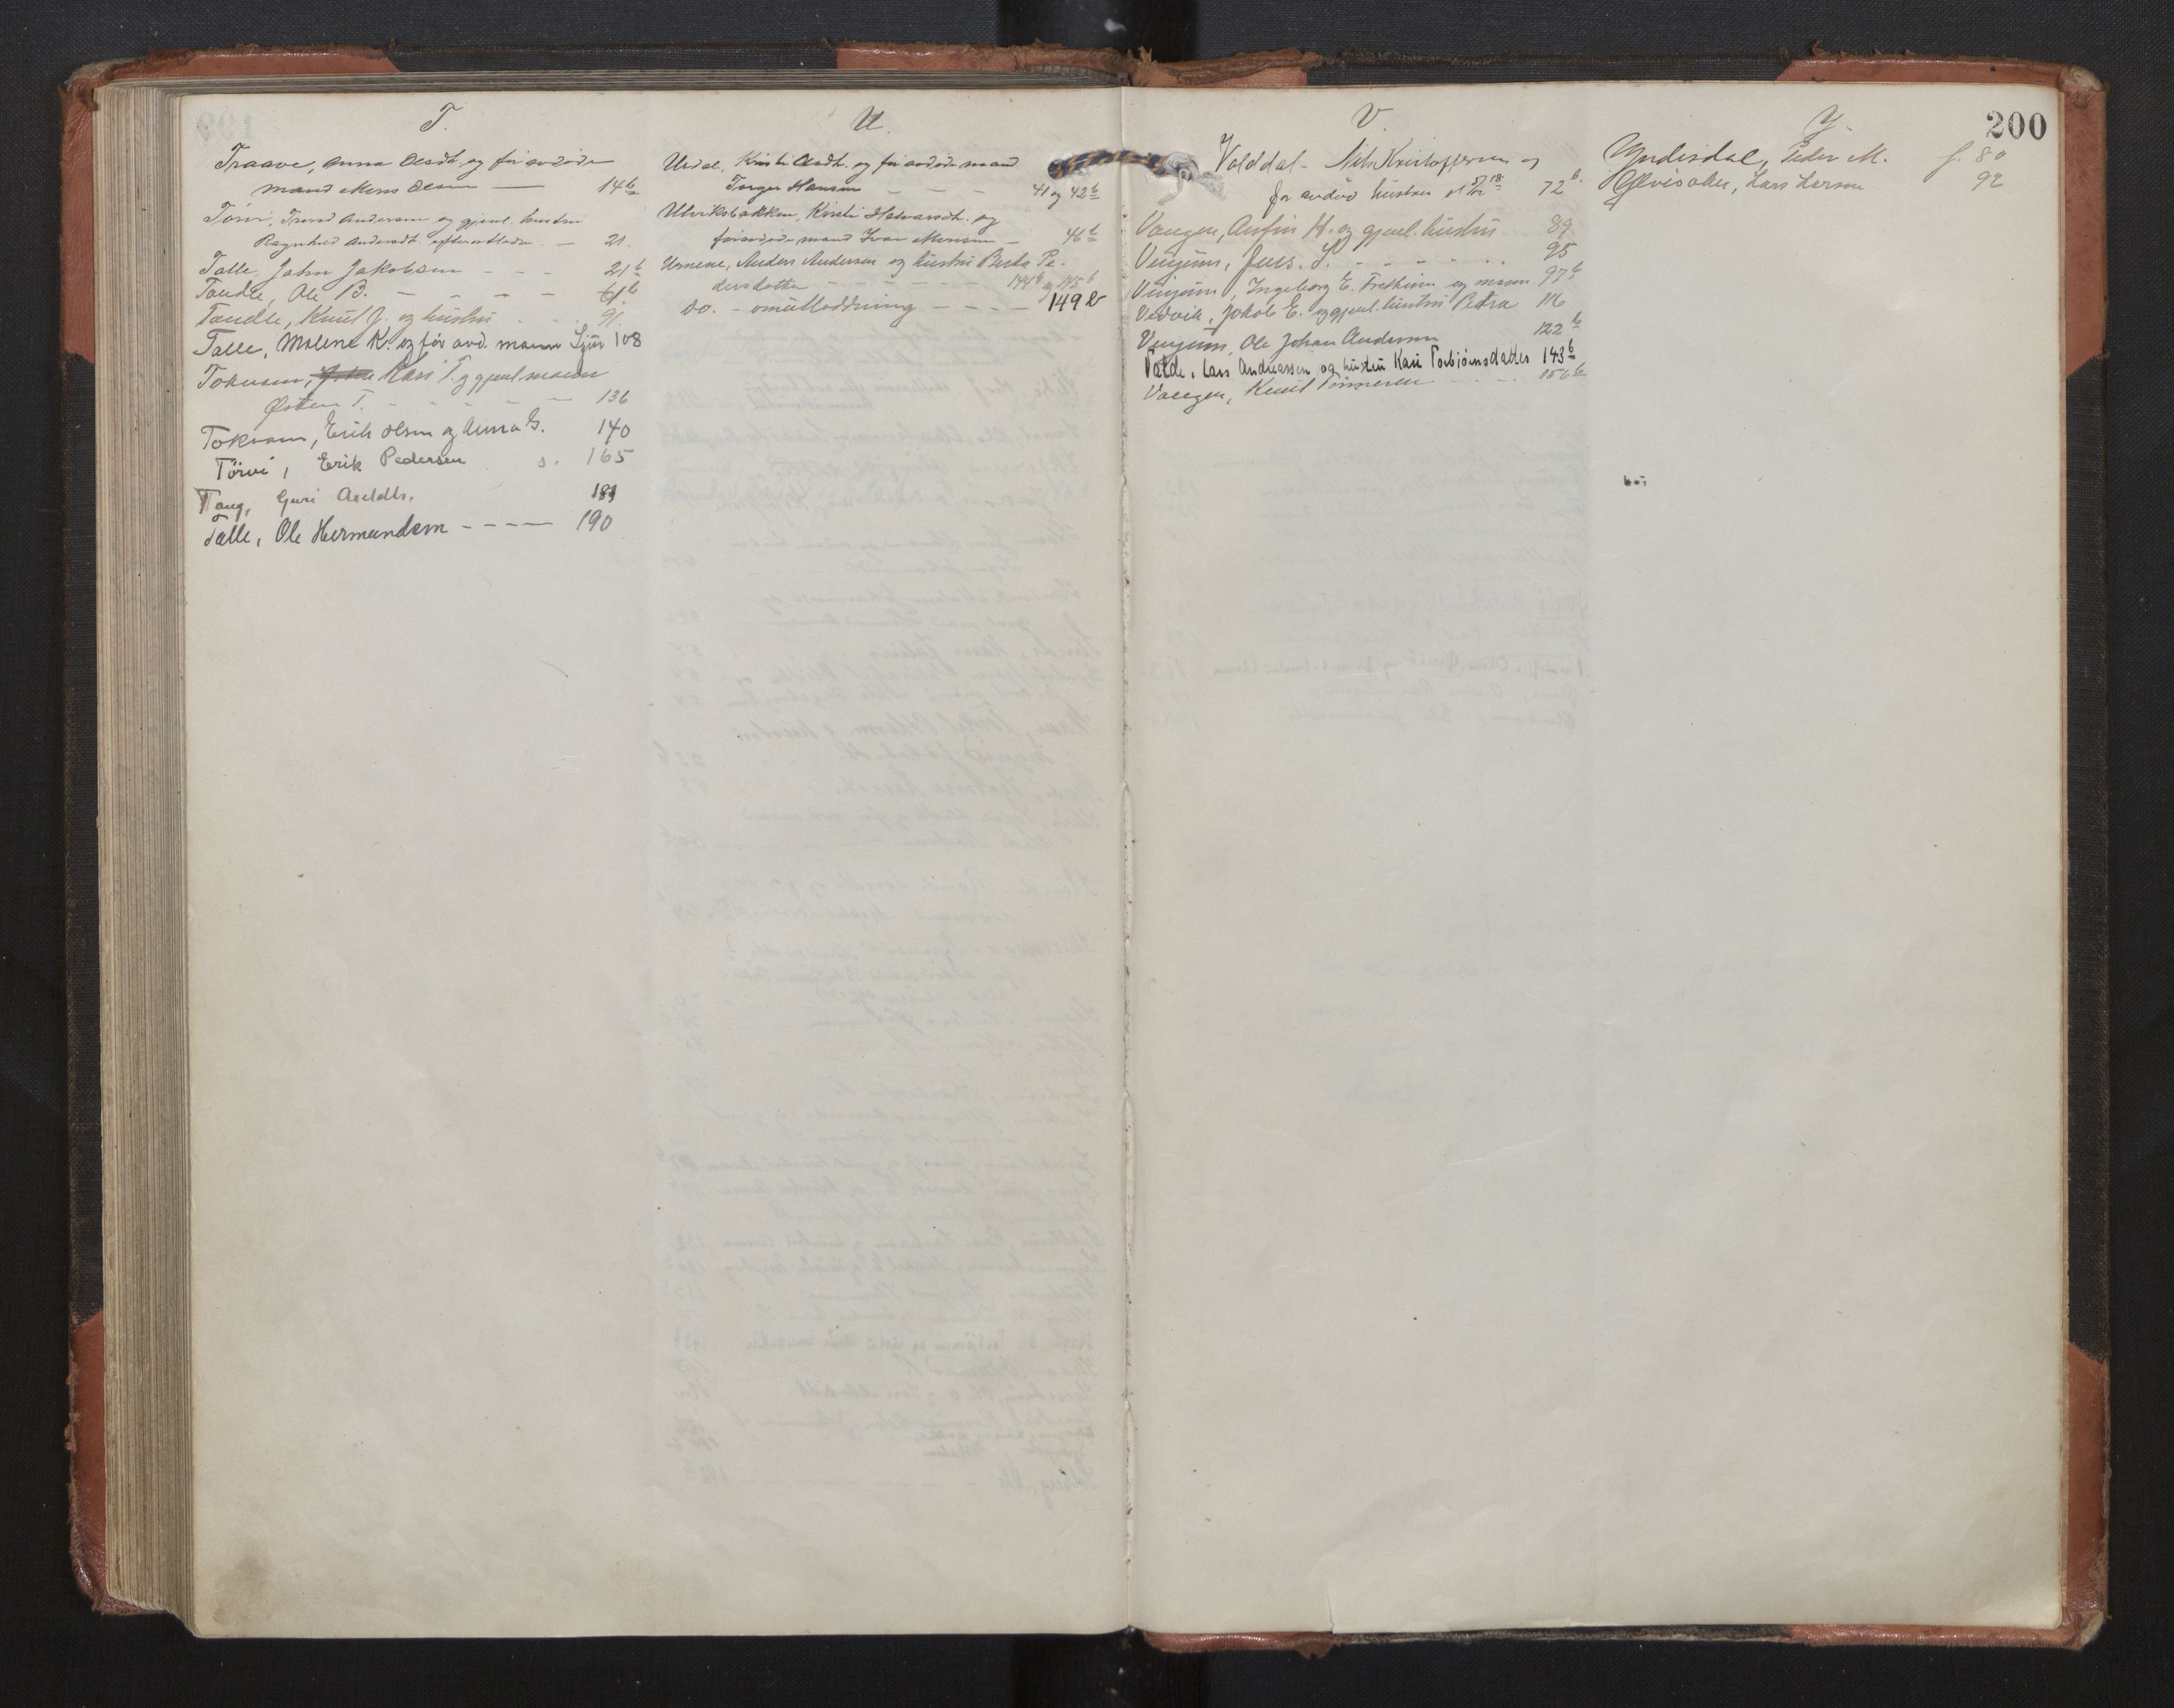 T.
Traave, Anna Olsdt. og før avdøde
mand Mons Olsen — 14b
Tørvi, Trond Andersen og gjenl. hustru
Ragnhild Andersdt. efterutlodn. — 21.
Talle, John Jakobsen - - - 21b
Tandle, Ole B. - - - 61b
Tandle, Knut J. og hustru . . 91
Talle, Malene K. og før avd. mann Sjur 108
Tokvam, Kari T. og gjenl. mann
Østen T. - - - - - 136
Tokvam, Erik Olsen og Anna G. 140
Tørvi, Erik Pedersen s. 165
Taug, Guri Aseldtr. 189
Talle, Ole Hermundsen - - - - 190
U.
Urdal, Kirsti Olsdt. og før avdøde mand
Torger Hansen - - - 41 og 42b
Ulviksbakken, Kirsti Halvarsdt. og
før avdøde mand Ivar Monsen - 46b
Urnene, Anders Andersen og hustru Brita Pe-
dersdotter - - - - - 144b og 145b
do. - omutlodding - - - - 149b
V.
Volddal - Nils Kristoffersen og
før avdød hustru 72b.
Vangen, Anfin H. og gjenl. hustru 89
Vinjum, Jens. S. - - - - - 95
Vinjum, Ingeborg E. Fretheim og mann 97b
Vedvik, Jakob E. og gjenl. hustru Petra 116
Vinjum, Ole Johan Andersen 122b
Valde, Lars Andreassen og hustru Kari Torbjørnsdatter 143b
Vangen, Knut - - - 156b
Y.
200
Yndesdal, Peder M. f. 80
Ylvisaker, Lars Larsen 92